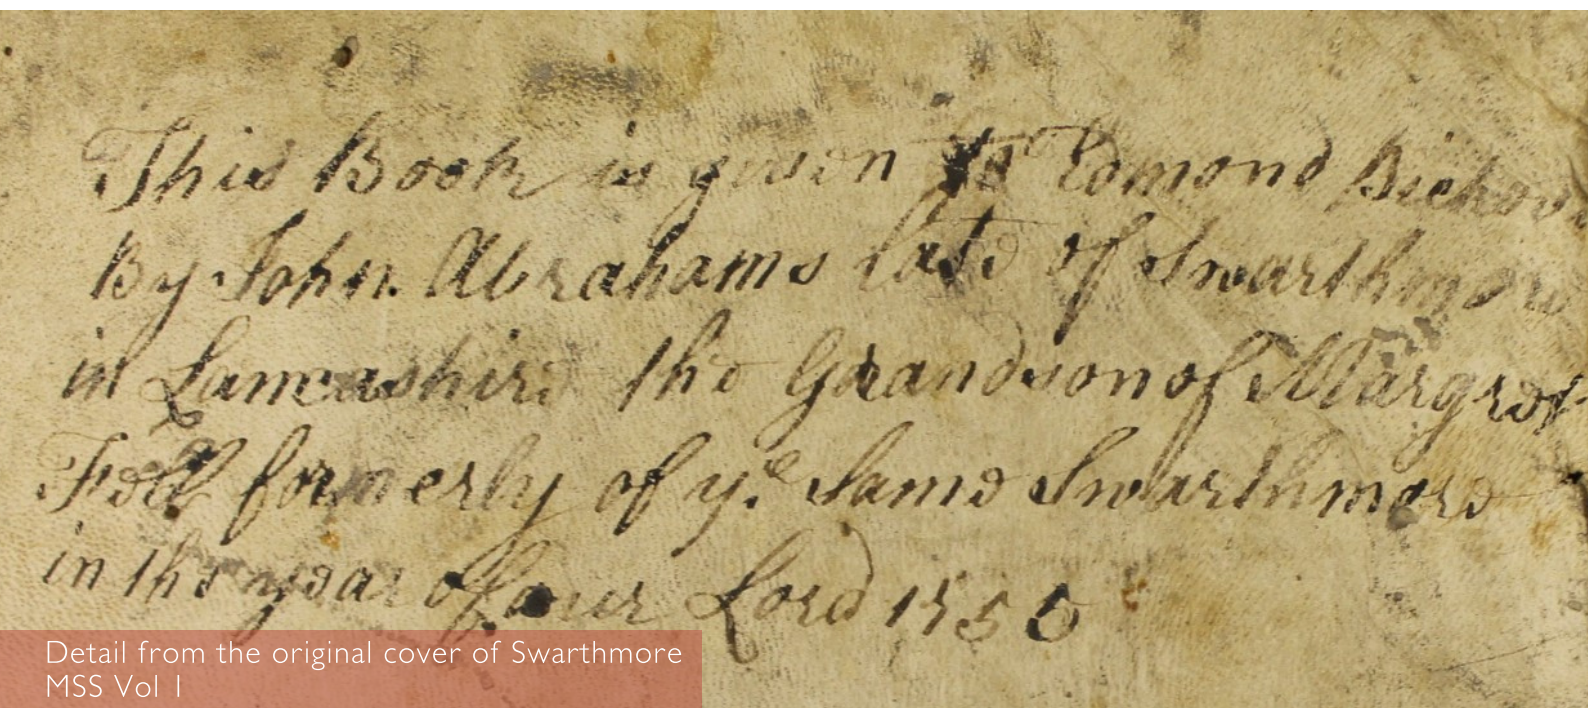 This Book is given to Edmond
By John Abrahams late of Swarthmore
in Lancashire the Grandson of Margret
Fell formerly of yᵉ Same Swarthmore
in the year of our Lord
Detail from the original cover of Swarthmore
MSS Vol 1